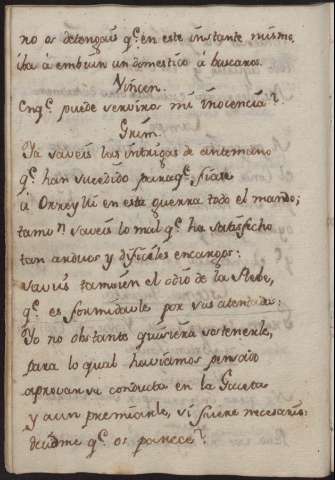 no os detengais q.e en este instante mismo
iba á embiar un domestico á buscaros.
Vincen.
En q.e puede serviros mi inocencia?
Grim.
Ya saveis las intrigas de antemano
q.e han sucedido para q.e fiase
á Orreylli en esta guerra todo el mando;
tamv.n saveis lo mal q.e ha satisfecho
tan arduos y dificiles encargos:
saveis tamvien el odio de la Plebe,
q.e es formidavle por sus atentados:
Yo no obstante quisiera sostenerle,
para lo qual haviamos pensado
aprovar su conducta en la Gaceta
y aun premiarle, si fuere necesario:
decidme q.e os parece?